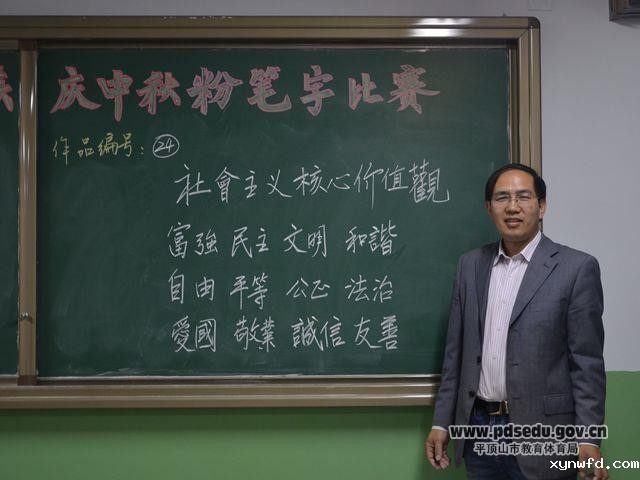 庆中秋粉笔字比赛
作品编号：㉔
社會主义核心价值觀
富強 民主 文明 和諧
自由 平等 公正 法治
愛國 敬業 誠信 友善
www.pdsedu.gov.cn
平顶山市教育体育局
xynwfd.com